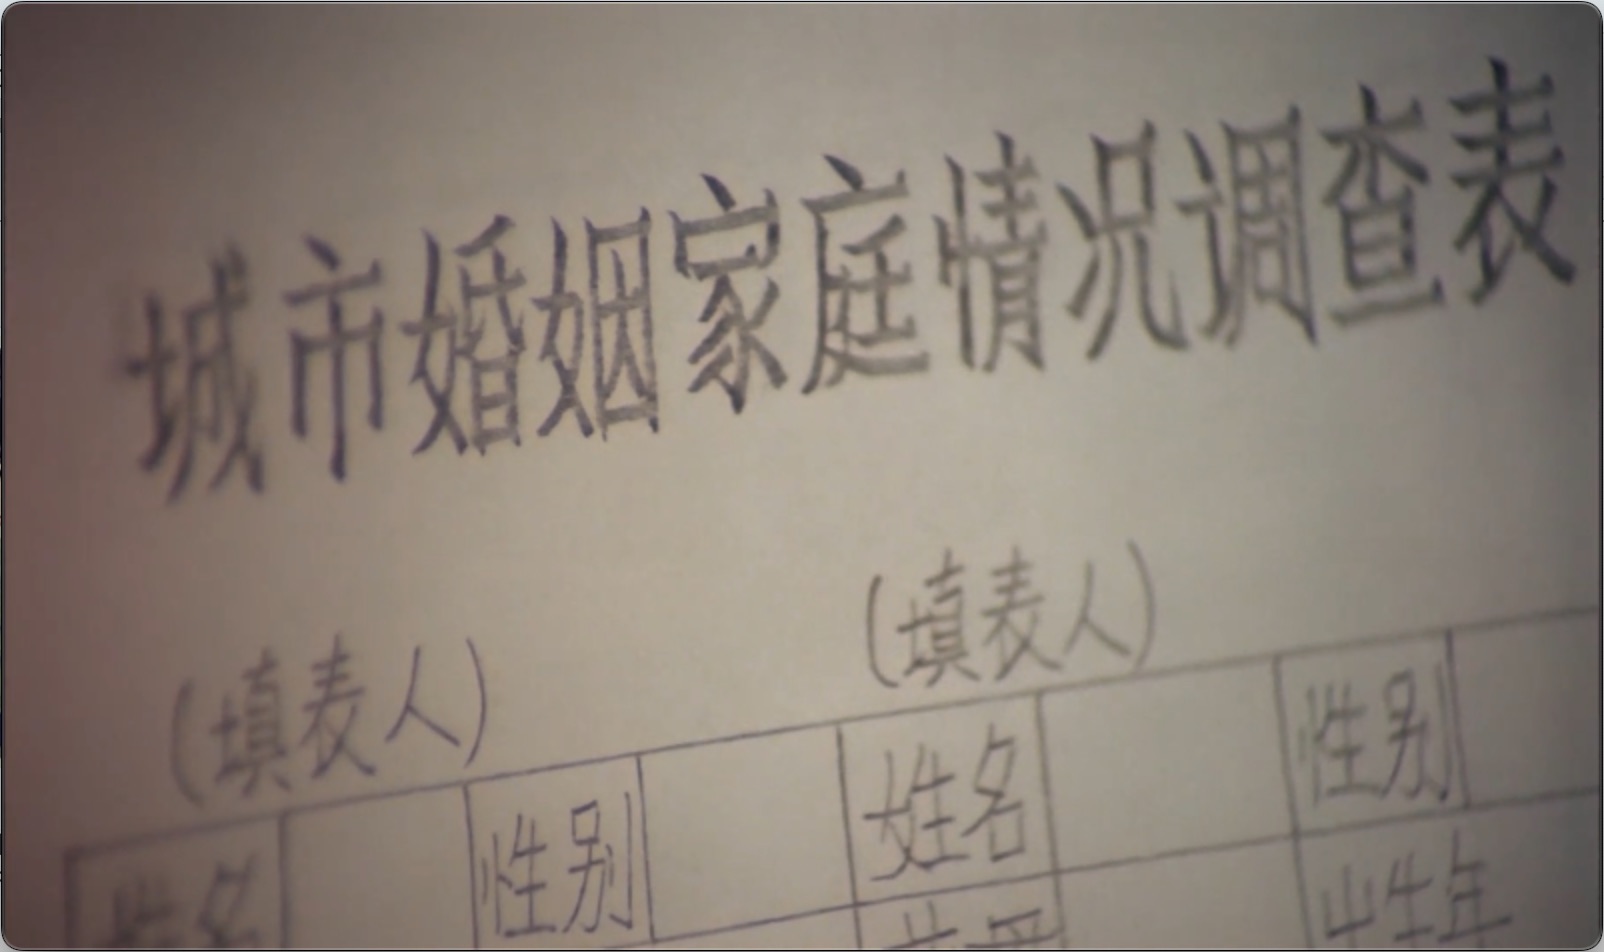 城市婚姻家庭情况调查表
(填表人) (填表人)
姓名 性别 姓名 性别
出生年